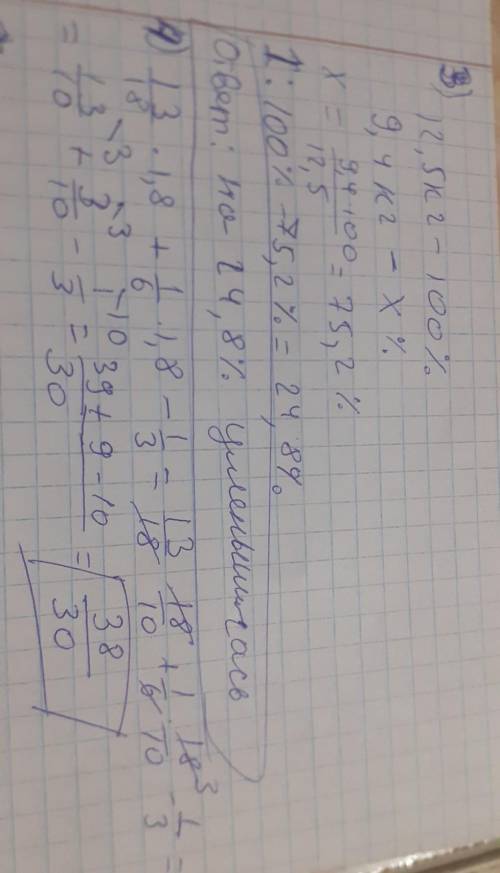 3) 12,5кг - 100%
9,4кг - x%
x = 9,4·100 / 12,5 = 75,2%
1: 100% - 75,2% = 24,8%
Ответ: на 24,8% уменьшилась
4) 13/18 · 1,8 + 1/6 · 1,8 - 1/3 = 13/18 · 18/10 + 1/6 · 18³/10 - 1/3 =
= 13\3/10 + 3\3/10 - 1\10/3 = 39+9-10 / 30 = 38/30